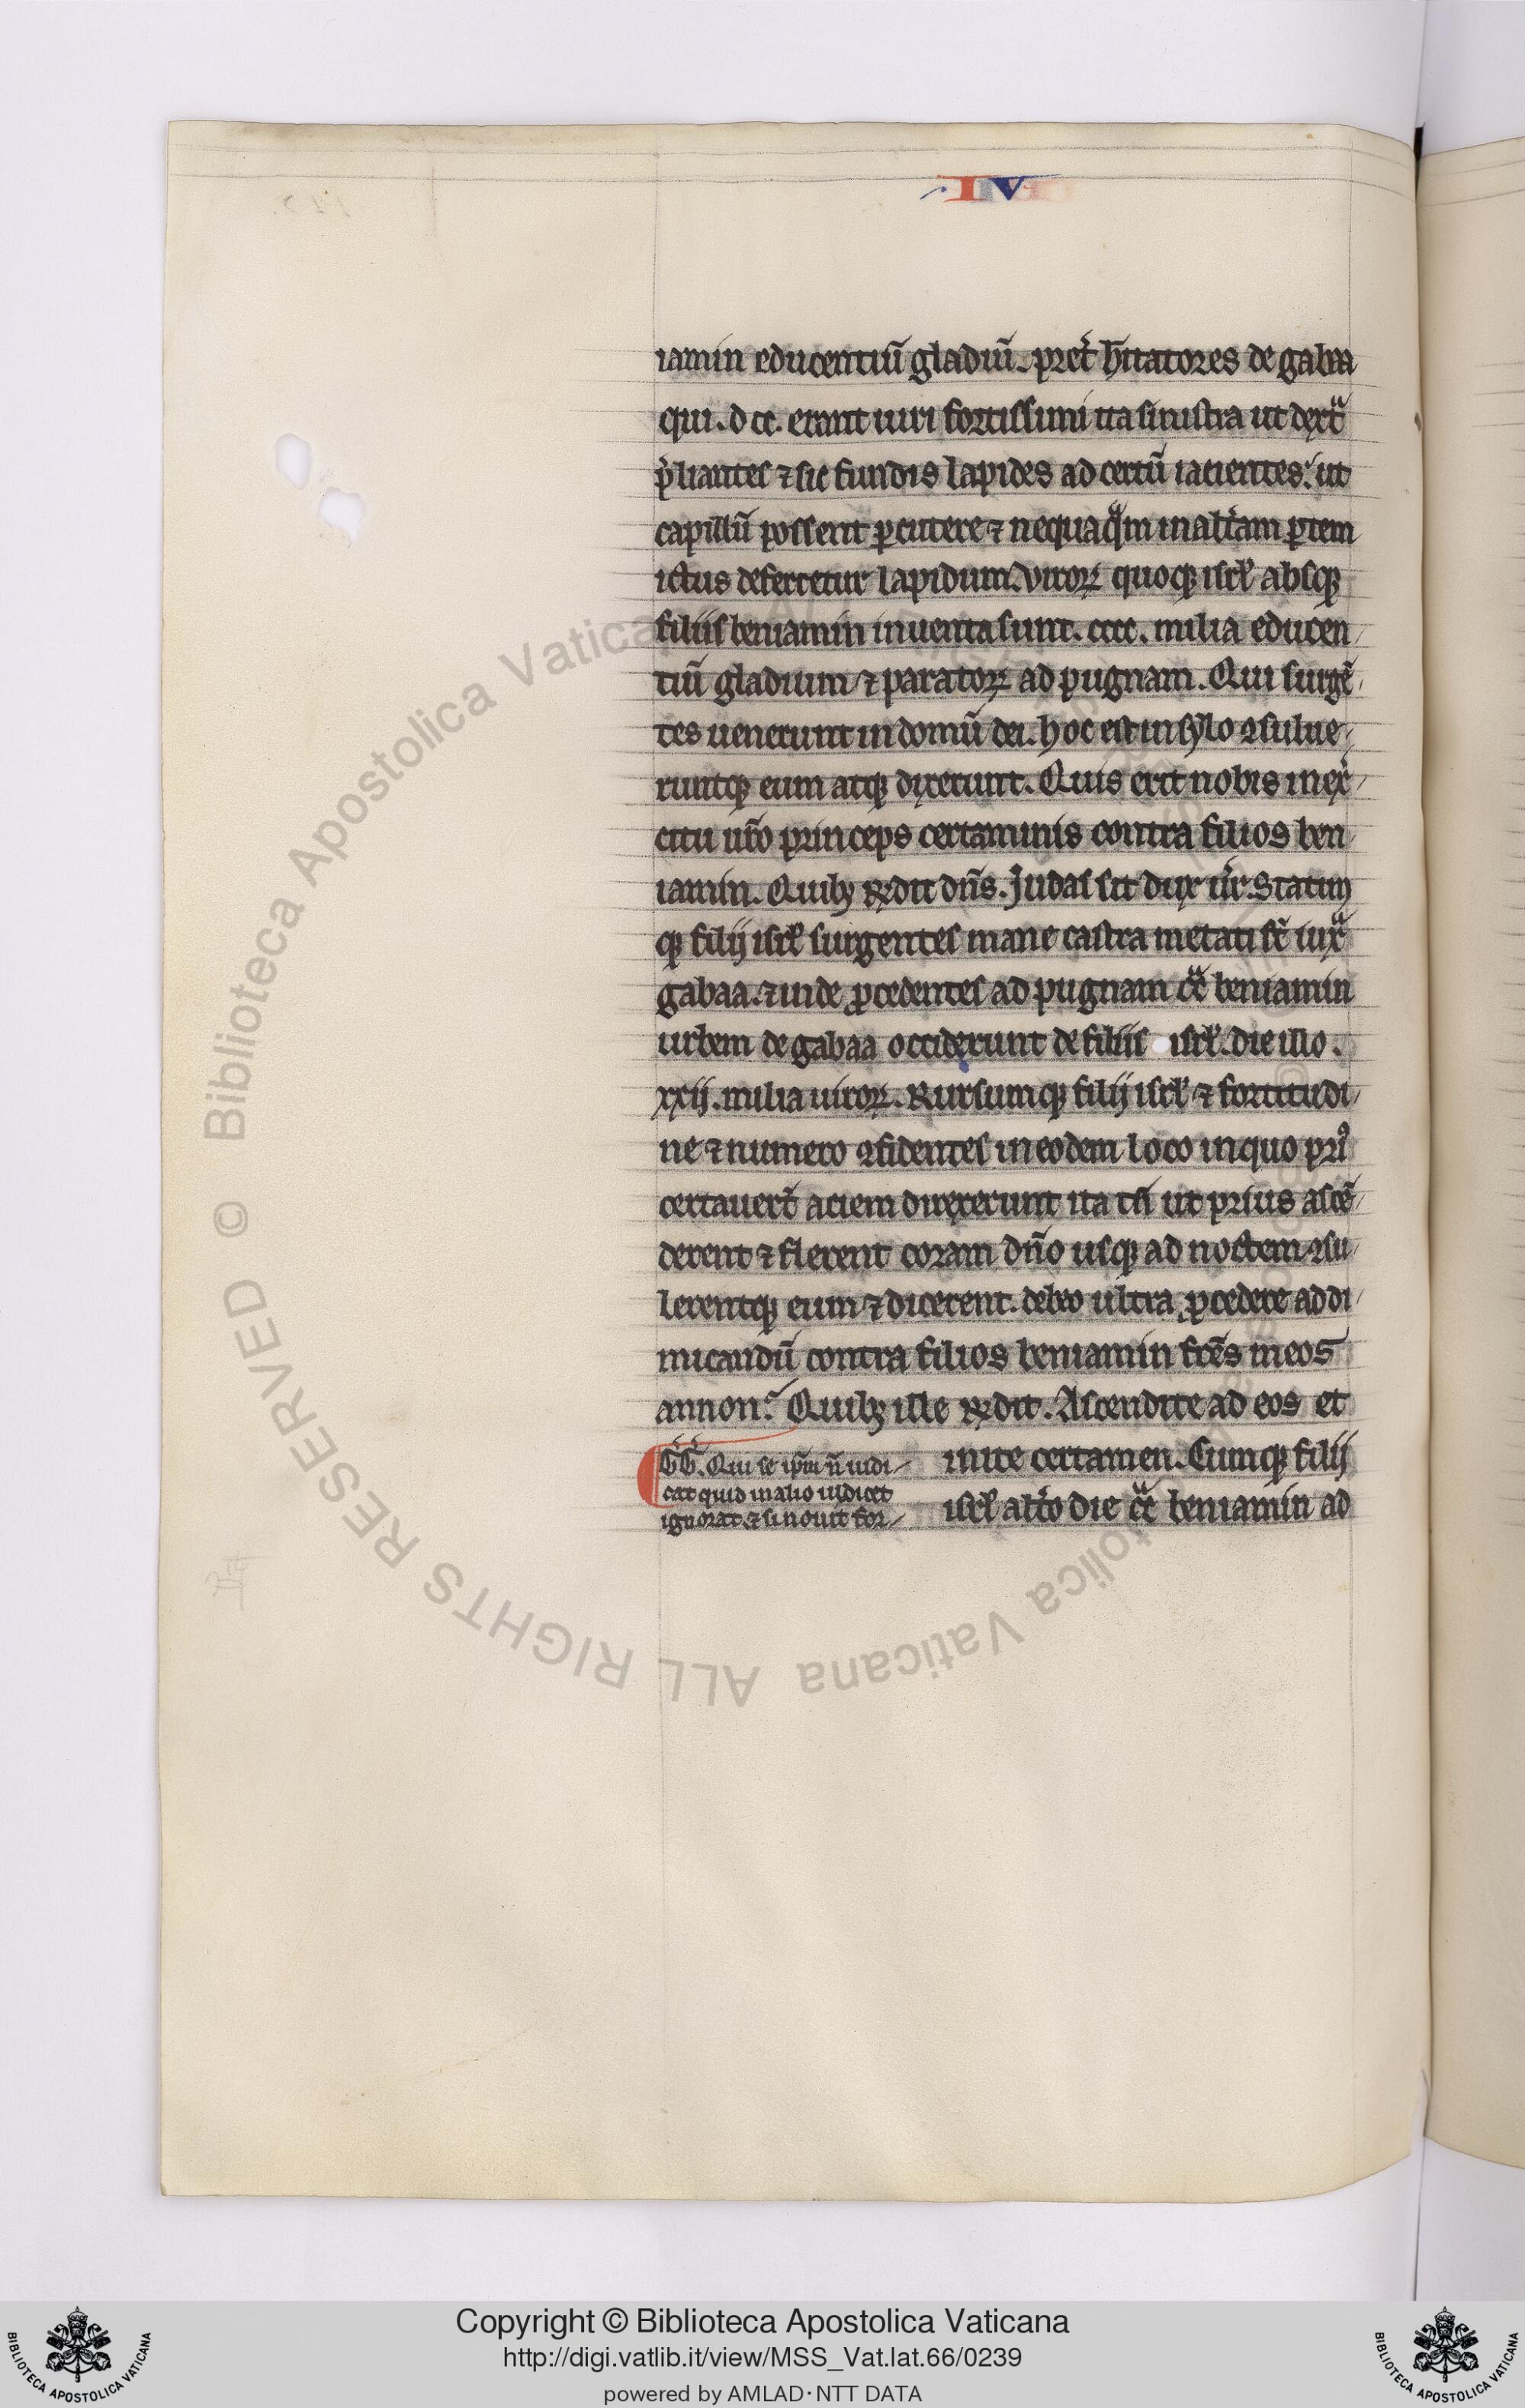 IV
iamin educentiũ gladiũ. pret̃ hītatores de gabaa
qui. dcc. erant uiri fortissimi ita sinistra ut dext̃
p̃liantes ⁊ sic fundis lapides ad certũ iacientes. ut
capillũ possent ꝑcutere ⁊ nequaq̃m in alt̃am ꝑtem
ictus deferretur lapidum. Viroꝝ quoqꝫ isrł absqꝫ
filiis beniamin inuenta sunt. cccc. milia educen
tiũ gladium ⁊ paratoꝝ ad pugnam. Qui surgẽ
tes uenerunt in domũ dei. hoc est in sylo ꝯsulue
runtqꝫ eum atqꝫ dixerunt. Quis erit nobis in ex̾
citu ñro princeps certaminis contra filios ben
iamin. Quibꝫ r̃ndit dñs. Judas sit dux ũr. Statim
qꝫ filij isrł surgentes mane castra metati st̃ iux̃
gabaa. ⁊ inde ꝓcedentes ad pugnam cͣ beniamin
urbem de gabaa occiderunt de filiis isrł. die illo.
xxij. milia uiroꝝ. Rursumqꝫ filij isrł ⁊ fortitudi
ne ⁊ numero ꝯfidentes in eodem loco in quo priꝰ
certauert̃ aciem direxerunt ita tñ ut prius ascẽ
derent ⁊ flerent coram dño usqꝫ ad noctem ꝯsu
lerentqꝫ eum ⁊ dicerent. debeo ultra ꝓcedere ad di
micandũ contra filios beniamin fr̃es meos
annon. Quibꝫ ille r̃ndit. Ascendite ad eos et
inite certamen. Cumqꝫ filij
isrł alt̃o die cͣ beniamin ad
G̃G̃. Qui se ip̃m ñ iudi
cat quid in alio iudicet
ignorat. ⁊ si nouit for
Biblioteca Apostolica Vaticana ALL RIGHTS RESERVED ©
Copyright © Biblioteca Apostolica Vaticana
http://digi.vatlib.it/view/MSS_Vat.lat.66/0239
powered by AMLAD·NTT DATA
BIBLIOTECA APOSTOLICA VATICANA
BIBLIOTECA APOSTOLICA VATICANA